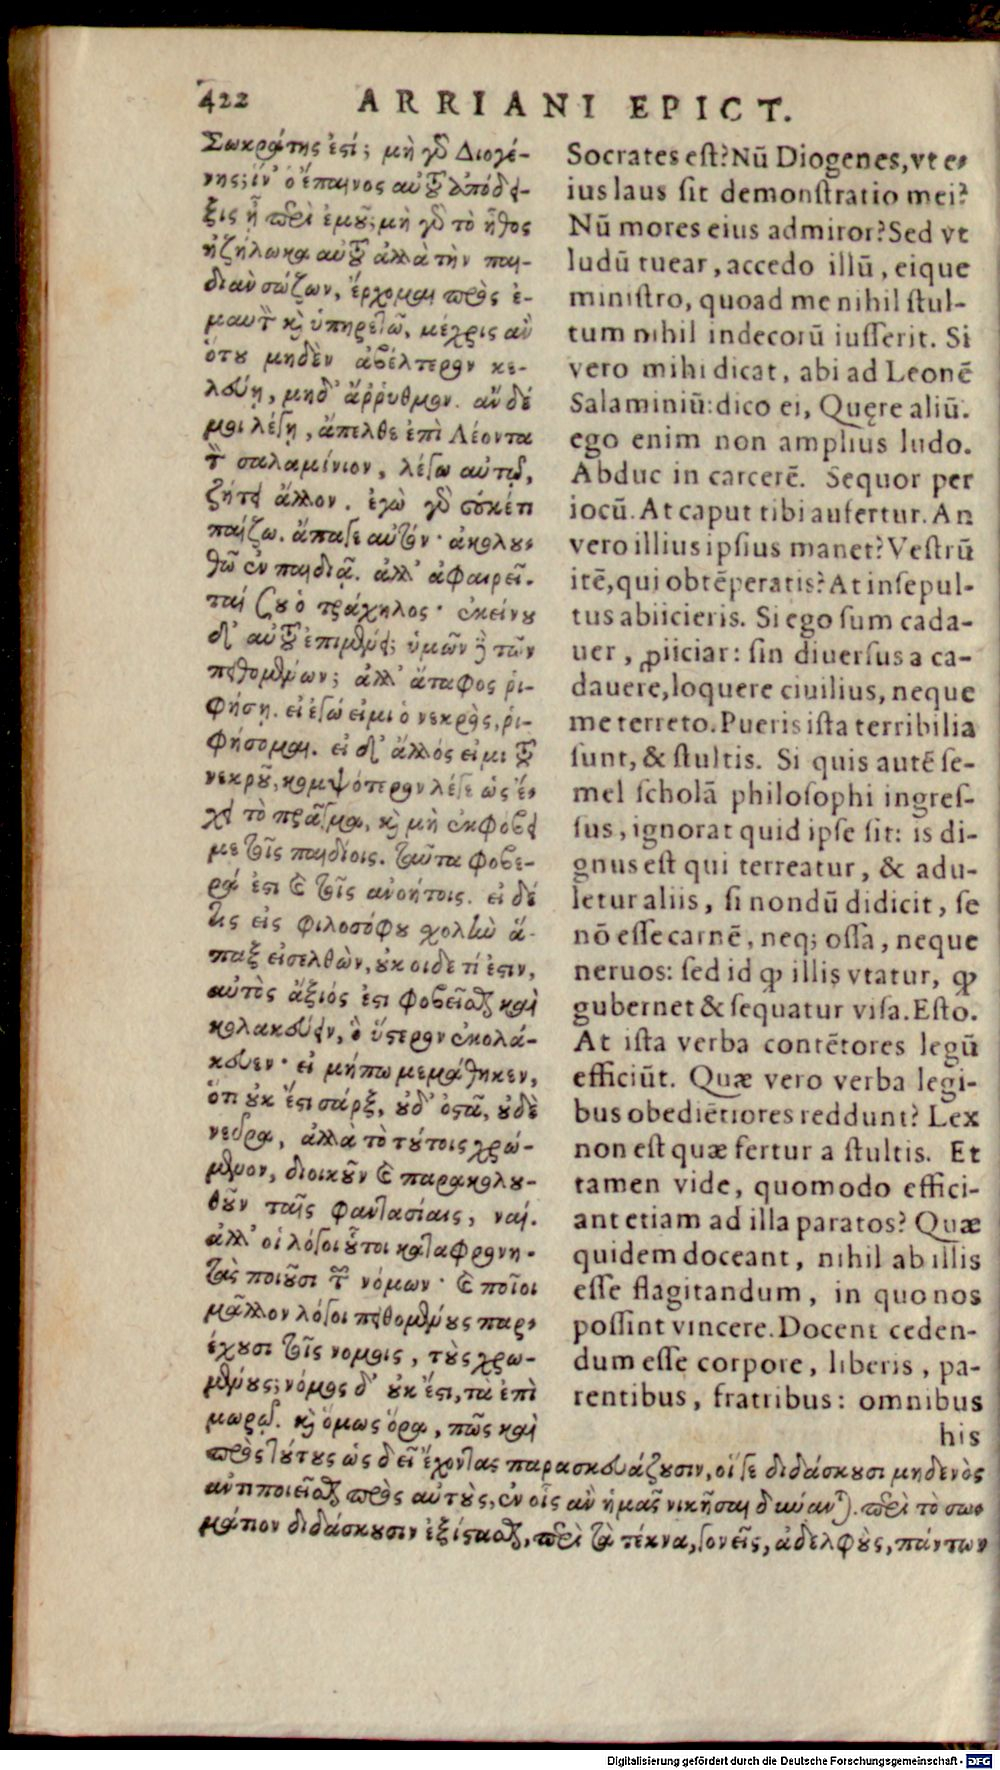 422 ARRIANI EPICT.
Σωκράτης ἐστί; μὴ γὸ Διογέ-
νης; ἵν' ὁ ἔπαινος αὐτοῦ ἀπόδει-
ξις ᾖ περὶ ἐμοῦ; μὴ γὸ τὸ ἦθος
ἐζήλωκα αὐτοῦ ἀλλὰ τὴν παι-
διὰν σώζων, ἔρχομαι πρὸς ἐ-
μαυτὸν καὶ ὑπηρετῶ, μέχρις ἂν
ὅτου μηδὲν ἀβέλτερον κε-
λεύῃ, μηδ' ἄῤῥυθμον. ἂν δέ
μοι λέγῃ, ἄπελθε ἐπὶ Λέοντα
τὸν σαλαμίνιον, λέγω αὐτῷ,
ζήτει ἄλλον. ἐγὼ γὸ οὐκέτι
παίζω. ἄπαγε αὐτόν· ἀκολου-
θῶ ἐν παιδιᾷ. ἀλλ' ἀφαιρεῖ-
ται σου ὁ τράχηλος· ἐκείνου
δ' αὐτοῦ ἐπιμένει; ὑμῶν δὲ τῶν
πειθομένων; ἀλλ' ἄταφος ῥι-
φήσῃ. εἰ ἐγώ εἰμι ὁ νεκρὸς, ῥι-
φήσομαι. εἰ δ' ἄλλός εἰμι τοῦ
νεκροῦ, κομψότερον λέγε ὡς ἔ-
χει τὸ πρᾶγμα, καὶ μὴ ἐκφόβει
με τοῖς παιδίοις. ταῦτα φοβε-
ρά ἐστι καὶ τοῖς ἀνοήτοις. εἰ δέ
τις εἰς φιλοσόφου σχολὴν ἅ-
παξ εἰσελθὼν, οὐκ οἶδε τί ἐστιν,
αὐτὸς ἄξιός ἐστι φοβεῖσθαι καὶ
κολακεύειν, ὃ ὕστερον ἐκολά-
κευεν· εἰ μήπω μεμάθηκεν,
ὅτι οὐκ ἔστι σάρξ, οὐδ' ὀστᾶ, οὐδὲ
νεῦρα, ἀλλὰ τὸ τούτοις χρώ-
μενον, διοικοῦν καὶ παρακολου-
θοῦν ταῖς φαντασίαις, ναί.
ἀλλ' οἱ λόγοι οὗτοι καταφρονη-
τὰς ποιοῦσι τῶν νόμων· καὶ ποῖοι
μᾶλλον λόγοι πειθομένους παρ-
έχουσι τοῖς νόμοις, τοὺς χρω-
μένους; νόμος δ' οὐκ ἔστι, τα ἐπὶ
μωρῷ. καὶ ὅμως ὅρα, πῶς καὶ
πρὸς τούτους ὡς δεῖ ἔχοντας παρασκευάζουσιν, οἵγε διδάσκουσι μηδενὸς
ἀντιποιεῖσθαι πρὸς αὐτοὺς, ἐν οἷς ἂν ἡμᾶς νικῆσαι δύνανται. περὶ τὸ σω-
μάτιον διδάσκουσιν ἐξίστασθαι, περὶ τὰ τέκνα, γονεῖς, ἀδελφοὺς, πάντων
Socrates est? Nū Diogenes, vt e-
ius laus sit demonstratio mei?
Nū mores eius admiror? Sed vt
ludū tuear, accedo illū, eique
ministro, quoad me nihil stul-
tum nihil indecorū iusserit. Si
vero mihi dicat, abi ad Leonē
Salaminiū: dico ei, Quęre aliū.
ego enim non amplius ludo.
Abduc in carcerē. Sequor per
iocū. At caput tibi aufertur. An
vero illius ipsius manet? Vestrū
itē, qui obtēperatis? At insepul-
tus abiicieris. Si ego sum cada-
uer, ꝓiiciar: sin diuersus a ca-
dauere, loquere ciuilius, neque
me terreto. Pueris ista terribilia
sunt, & stultis. Si quis autē se-
mel scholā philosophi ingres-
sus, ignorat quid ipse sit: is di-
gnus est qui terreatur, & adu-
letur aliis, si nondū didicit, se
nō esse carnē, neq; ossa, neque
neruos: sed id ꝙ illis vtatur, ꝙ
gubernet & sequatur visa. Esto.
At ista verba contētores legū
efficiūt. Quæ vero verba legi-
bus obediētiores reddunt? Lex
non est quæ fertur a stultis. Et
tamen vide, quomodo effici-
ant etiam ad illa paratos? Quæ
quidem doceant, nihil ab illis
esse flagitandum, in quo nos
possint vincere. Docent ceden-
dum esse corpore, liberis, pa-
rentibus, fratribus: omnibus
his
Digitalisierung gefördert durch die Deutsche Forschungsgemeinschaft - DFG